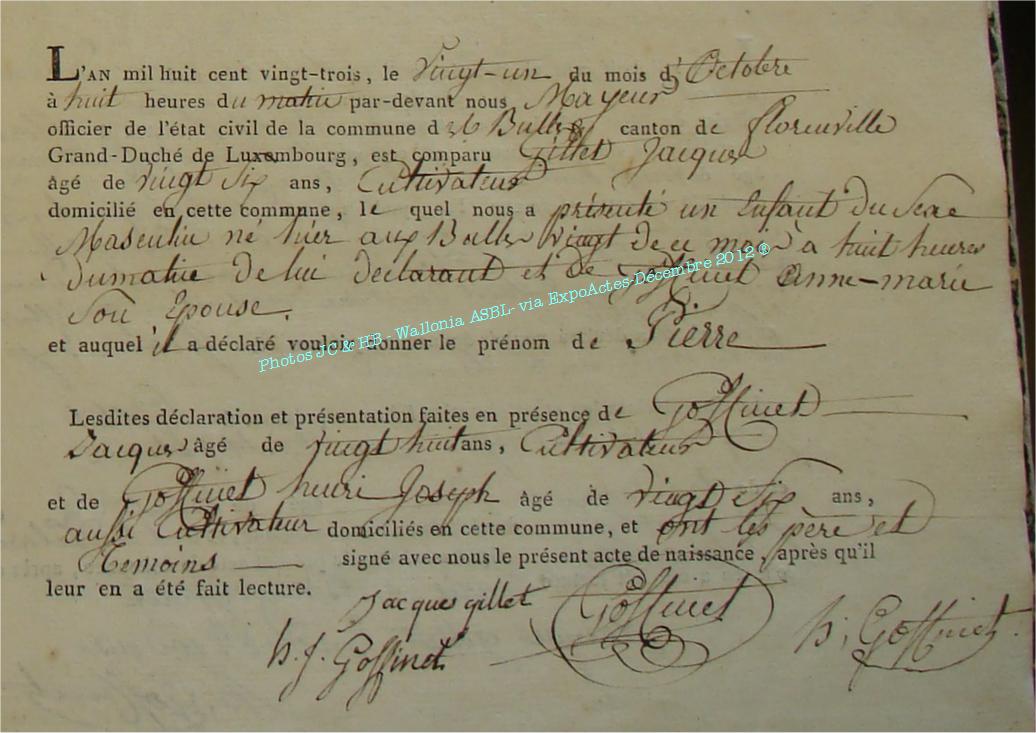 L'AN mil huit cent vingt-trois, le vingt-un du mois d' Octobre
à huit heures du matin par-devant nous Mayeur
officier de l'état civil de la commune des Bulles canton de florenville
Grand-Duché de Luxembourg, est comparu Gillet Jacques
âgé de vingt six ans, Cultivateur
domicilié en cette commune, le quel nous a présenté un Enfant du Sexe
Masculin né hier aux Bulles vingt de ce mois a huit heures
dumatin de lui declarant et de Goffinet anne-marie
Son Epouse.
et auquel il a déclaré vouloir donner le prénom de Pierre
Photos JC & HB - Wallonia ASBL- via ExpoActes-Décembre 2012 ®
Lesdites déclaration et présentation faites en présence de Goffinet
Jacques âgé de vingt huit ans, Cultivateur
et de Goffinet henri Joseph âgé de vingt six ans,
aussi Cultivateur domiciliés en cette commune, et ont les père et
Temoins signé avec nous le présent acte de naissance, après qu'il
leur en a été fait lecture.
Jacques gillet Goffinet
h. j. Goffinet h. Goffinet